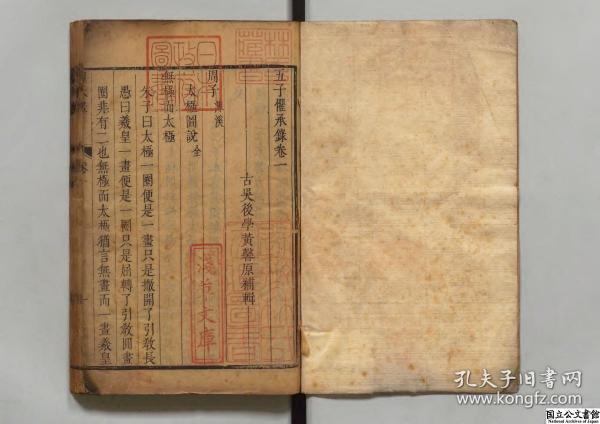 五子懼承錄卷一
古吳後學黃聲原補輯
周子濂溪
太極圖說全
無極而太極
朱子曰太極一圈便是一畫只是撤開了引教長
愚曰羲皇一畫便是一圈只是屈轉了引教圓畫
圈非有二也無極而太極猶言無畫而一畫羲皇
日本政府圖書
淺草文庫
孔夫子旧书网
www.kongfz.com
国立公文書館
National Archives of Japan